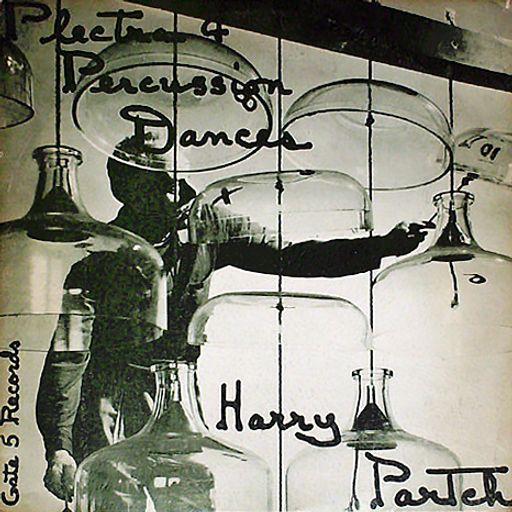 Plectra &
Percussion
Dances
Harry
Partch
Gate 5 Records